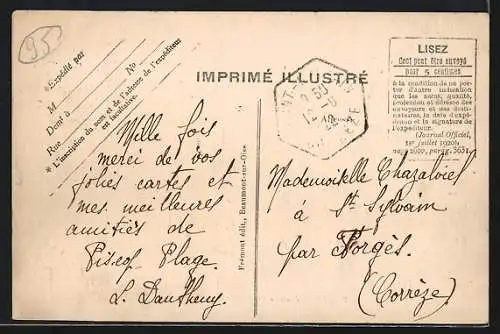 95
* Expédié par
M
No
Dent à
Rue
* L'inscription du nom et de l'adresse de l'expéditeur
est facultative.
IMPRIMÉ ILLUSTRÉ
LISEZ
Ceci peut être envoyé
pour 5 centimes
à condition de ne por-
ter d'autre indication
que les noms, qualité,
profession et adresse des
envoyeurs et des desti-
nataires, la date d'ex-
pédition et la signature de
l'expéditeur.
(Journal Officiel,
1er juillet 1920,
page 3631.
Mille fois
merci de vos
jolies cartes et
mes meilleures
amitiés de
Pisseq. Plage.
Frémont édit., Beaumont-sur-Oise
Mademoiselle Chazalviel
à St Sylvain
par Forgès.
(Corrèze)